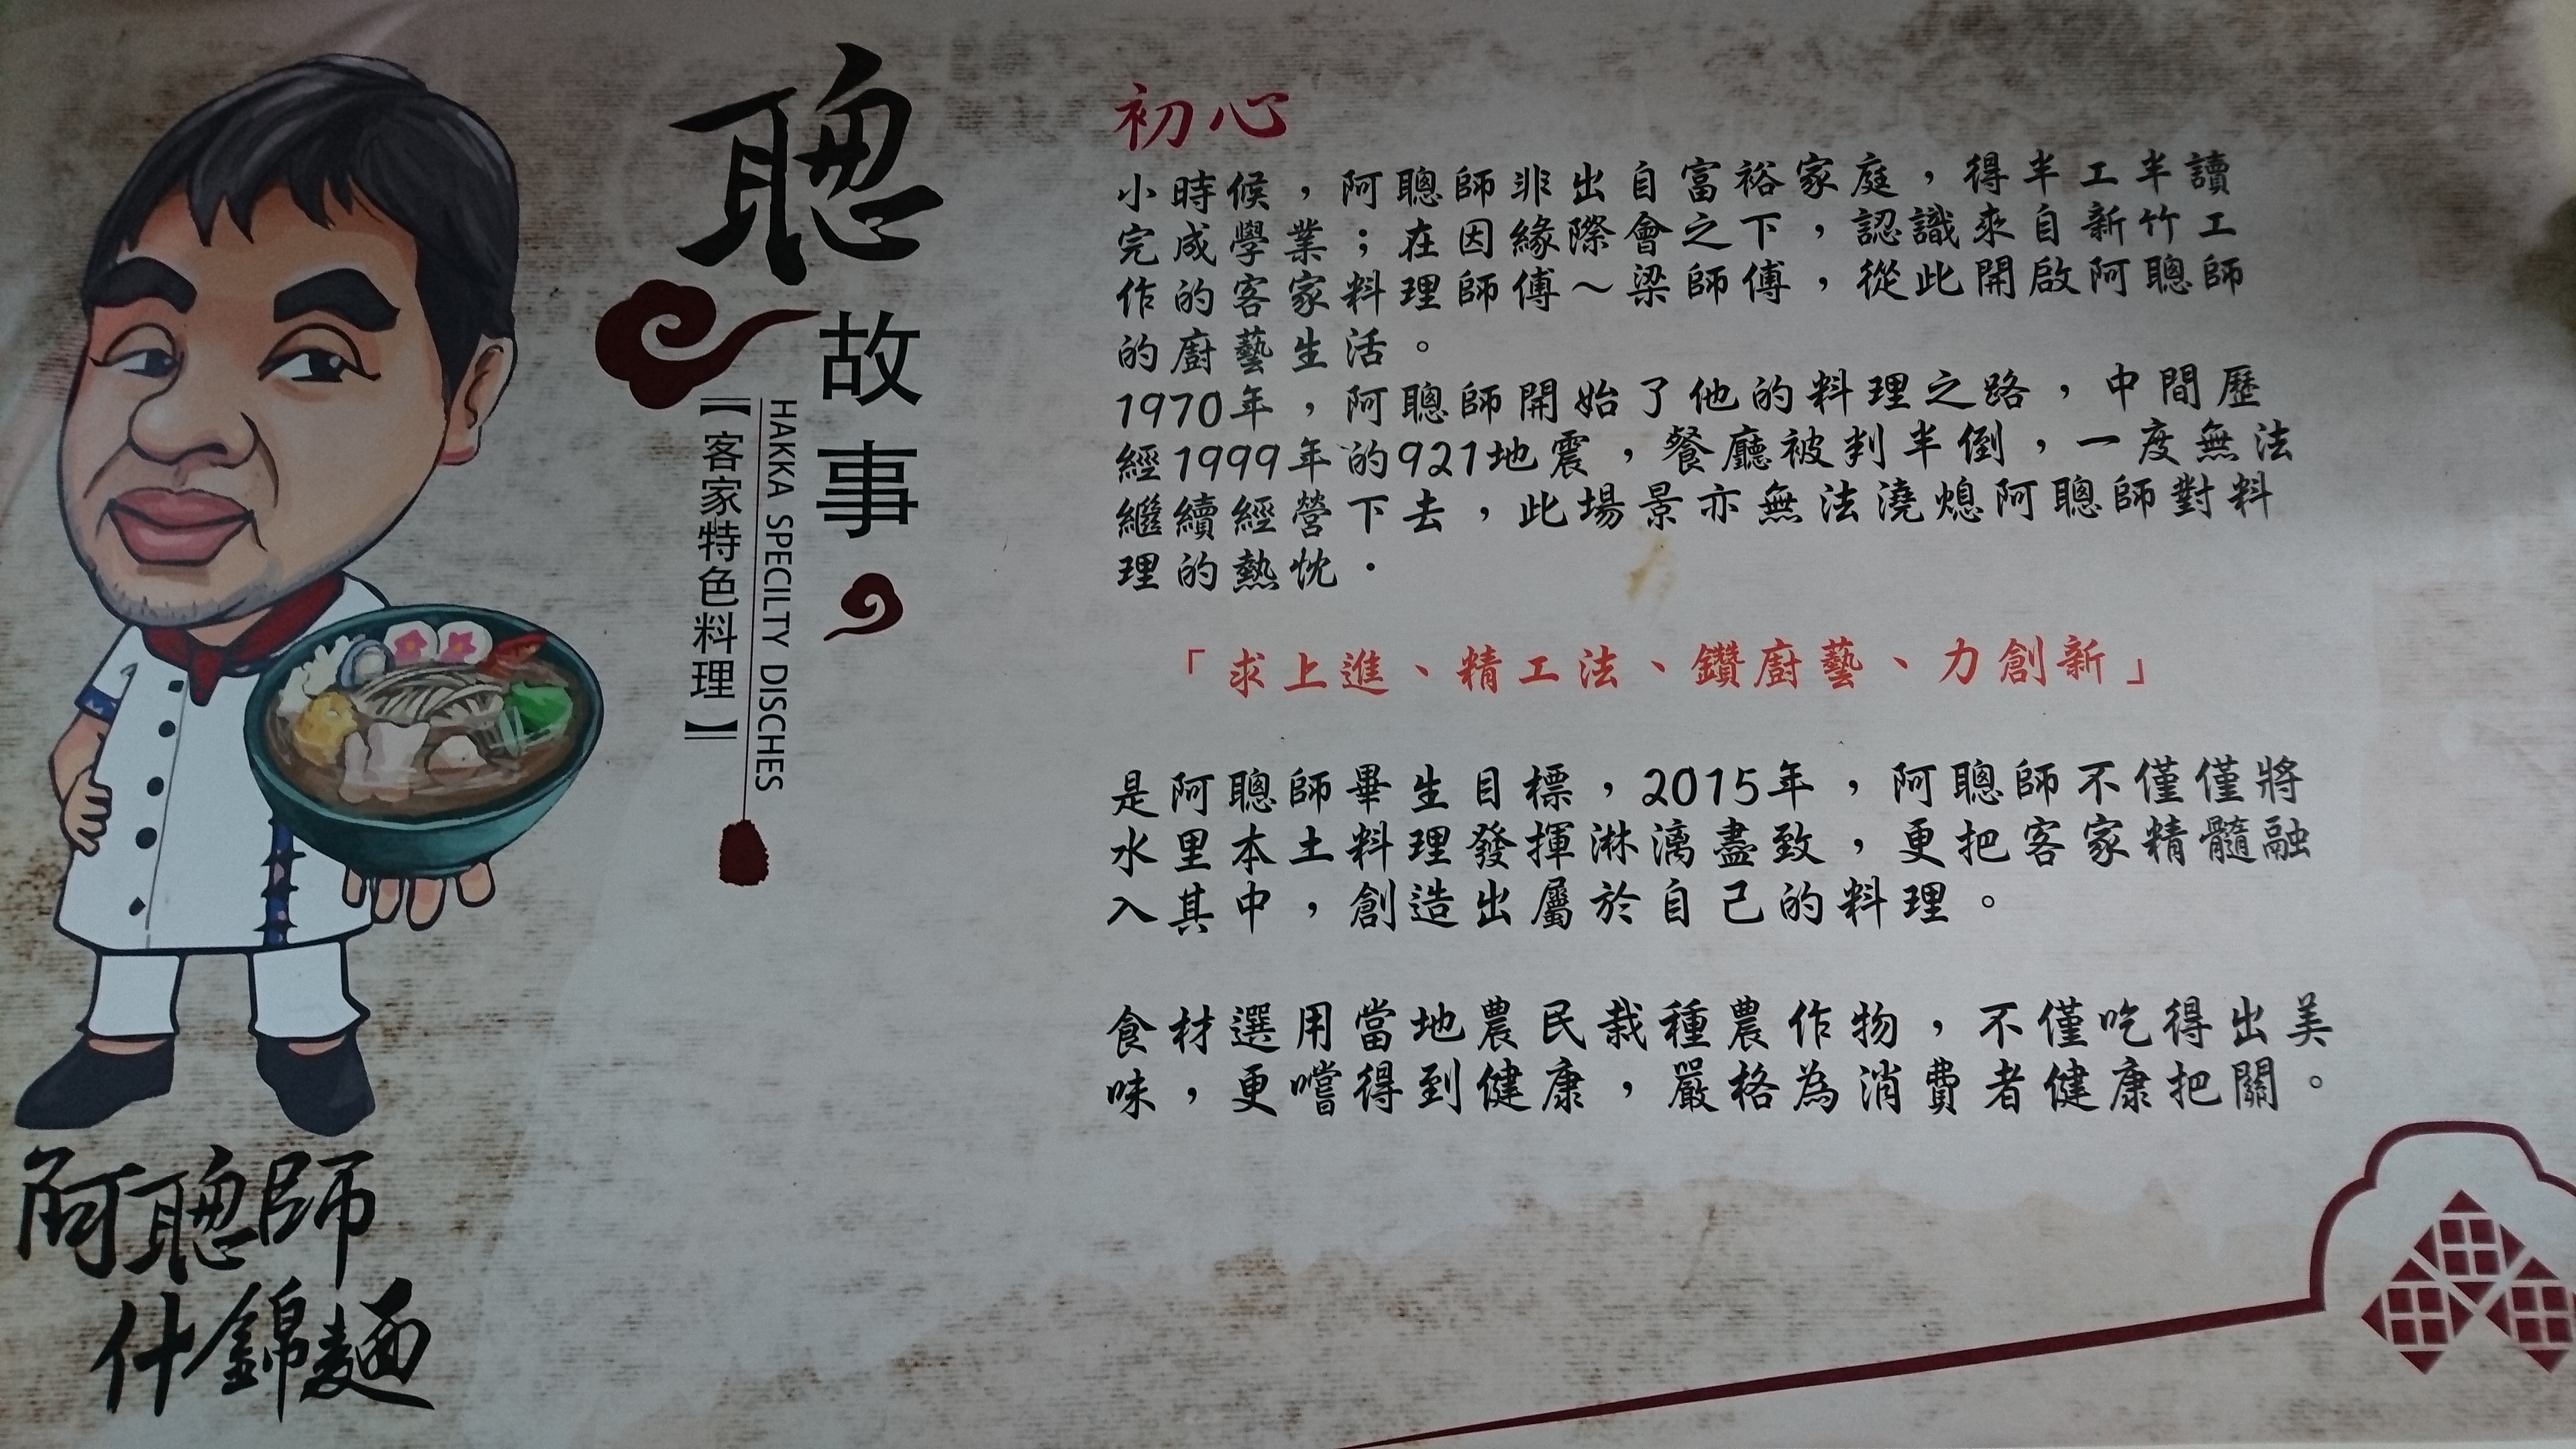 聰
故事
HAKKA SPECILTY DISCHES
【客家特色料理】
初心
小時候，阿聰師非出自富裕家庭，得半工半讀
完成學業；在因緣際會之下，認識來自新竹工
作的客家料理師傅～梁師傅，從此開啟阿聰師
的廚藝生活。
1970年，阿聰師開始了他的料理之路，中間歷
經1999年的921地震，餐廳被判半倒，一度無法
繼續經營下去，此場景亦無法澆熄阿聰師對料
理的熱忱．
「求上進、精工法、鑽廚藝、力創新」
是阿聰師畢生目標，2015年，阿聰師不僅僅將
水里本土料理發揮淋漓盡致，更把客家精髓融
入其中，創造出屬於自己的料理。
食材選用當地農民栽種農作物，不僅吃得出美
味，更嚐得到健康，嚴格為消費者健康把關。
阿聰師
什錦麵